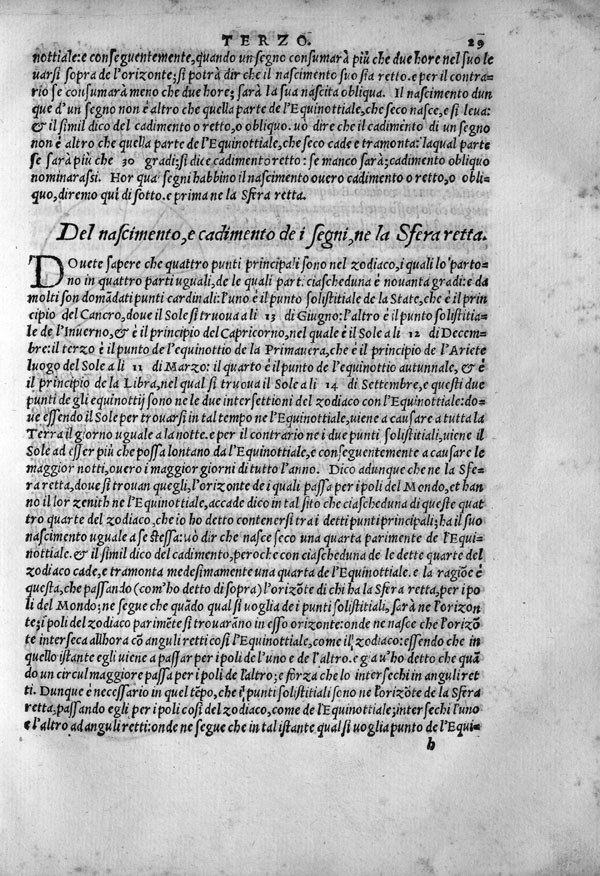 TERZO. 29
nottiale: e conseguentemente, quando un segno consumarà più che due hore nel suo le
uarsi sopra de l'orizonte; si potrà dir che il nascimento suo sia retto. e per il contra-
rio se consumarà meno che due hore; sarà la sua nascita obliqua. Il nascimento dun
que d'un segno non è altro che quella parte de l'Equinottiale, che seco nasce, e si leua:
& il simil dico del cadimento o retto, o obliquo. uò dire che il cadimento di un segno
non è altro che quella parte de l'Equinottiale, che seco cade e tramonta: laqual parte
se sarà più che 30 gradi; si dice cadimento retto: se manco sarà; cadimento obliquo
nominarassi. Hor qua segni habbino il nascimento ouero cadimento o retto, o obli-
quo, diremo quì di sotto. e prima ne la Sfera retta.
Del nascimento, e cadimento de i segni, ne la Sfera retta.
DOuete sapere che quattro punti principali sono nel zodiaco, i quali lo parto-
no in quattro parti uguali, de le quali part. ciascheduna è nouanta gradi: e da
molti son domãdati punti cardinali: l'uno è il punto solistitiale de la State, che è il prin
cipio del Cancro, doue il Sole si truoua a li 13 di Giugno: l'altro è il punto solistitia-
le de l'Inuerno, & è il principio del Capricorno, nel quale è il Sole a li 12 di Decem-
bre: il terzo è il punto de l'equinottio de la Primauera, che è il principio de l'Ariete
luogo del Sole a li 11 di Marzo: il quarto è il punto de l'equinottio autunnale, & è
il principio de la Libra, nel qual si truoua il Sole a li 14 di Settembre, e questi due
punti de gli equinottij sono ne le due intersettioni del zodiaco con l'Equinottiale: do-
ue essendo il Sole per trouarsi in tal tempo ne l'Equinottiale, uiene a causare a tutta la
Terra il giorno uguale a la notte. e per il contrario ne i due punti solistitiali, uiene il
Sole ad esser più che possa lontano da l'Equinottiale, e conseguentemente a causare le
maggior notti, ouero i maggior giorni di tutto l'anno. Dico adunque che ne la Sfe-
ra retta, doue si trouan quegli, l'orizonte de i quali passa per i poli del Mondo, et han
no il lor zenith ne l'Equinottiale, accade dico in tal sito che ciascheduna di queste quat
tro quarte del zodiaco, che io ho detto contenersi tra i detti punti principali; ha il suo
nascimento uguale a se stessa: uò dir che nasce seco una quarta parimente de l'Equi-
nottiale. & il simil dico del cadimento, peroche con ciascheduna de le dette quarte del
zodiaco cade, e tramonta medesimamente una quarta de l'Equinottiale. e la ragiõe è
questa, che passando (com'ho detto di sopra) l'orizõte di chi ha la Sfera retta, per i po
li del Mondo; ne segue che quãdo qual si uoglia de i punti solistitiali, sarà ne l'orizon
te; i poli del zodiaco parimẽte si trouarãno in esso orizonte: onde ne nasce che l'orizõ
te interseca allhora cõ anguli retti così l'Equinottiale, come il zodiaco: essendo che in
quello istante egli uiene a passar per i poli de l'uno e de l'altro. e g a u'ho detto che quã
do un circul maggiore passa per i poli de l'altro; e forza che lo intersechi in anguli ret
ti. Dunque è necessario in quel tẽpo, che i punti solistitiali sono ne l'orizõte de la Sfera
retta; passando egli per i poli così del zodiaco, come de l'Equinottiale; intersechi l'uno
e l'altro ad anguli retti: onde ne segue che in tal istante qual si uoglia punto de l'Equi-
h